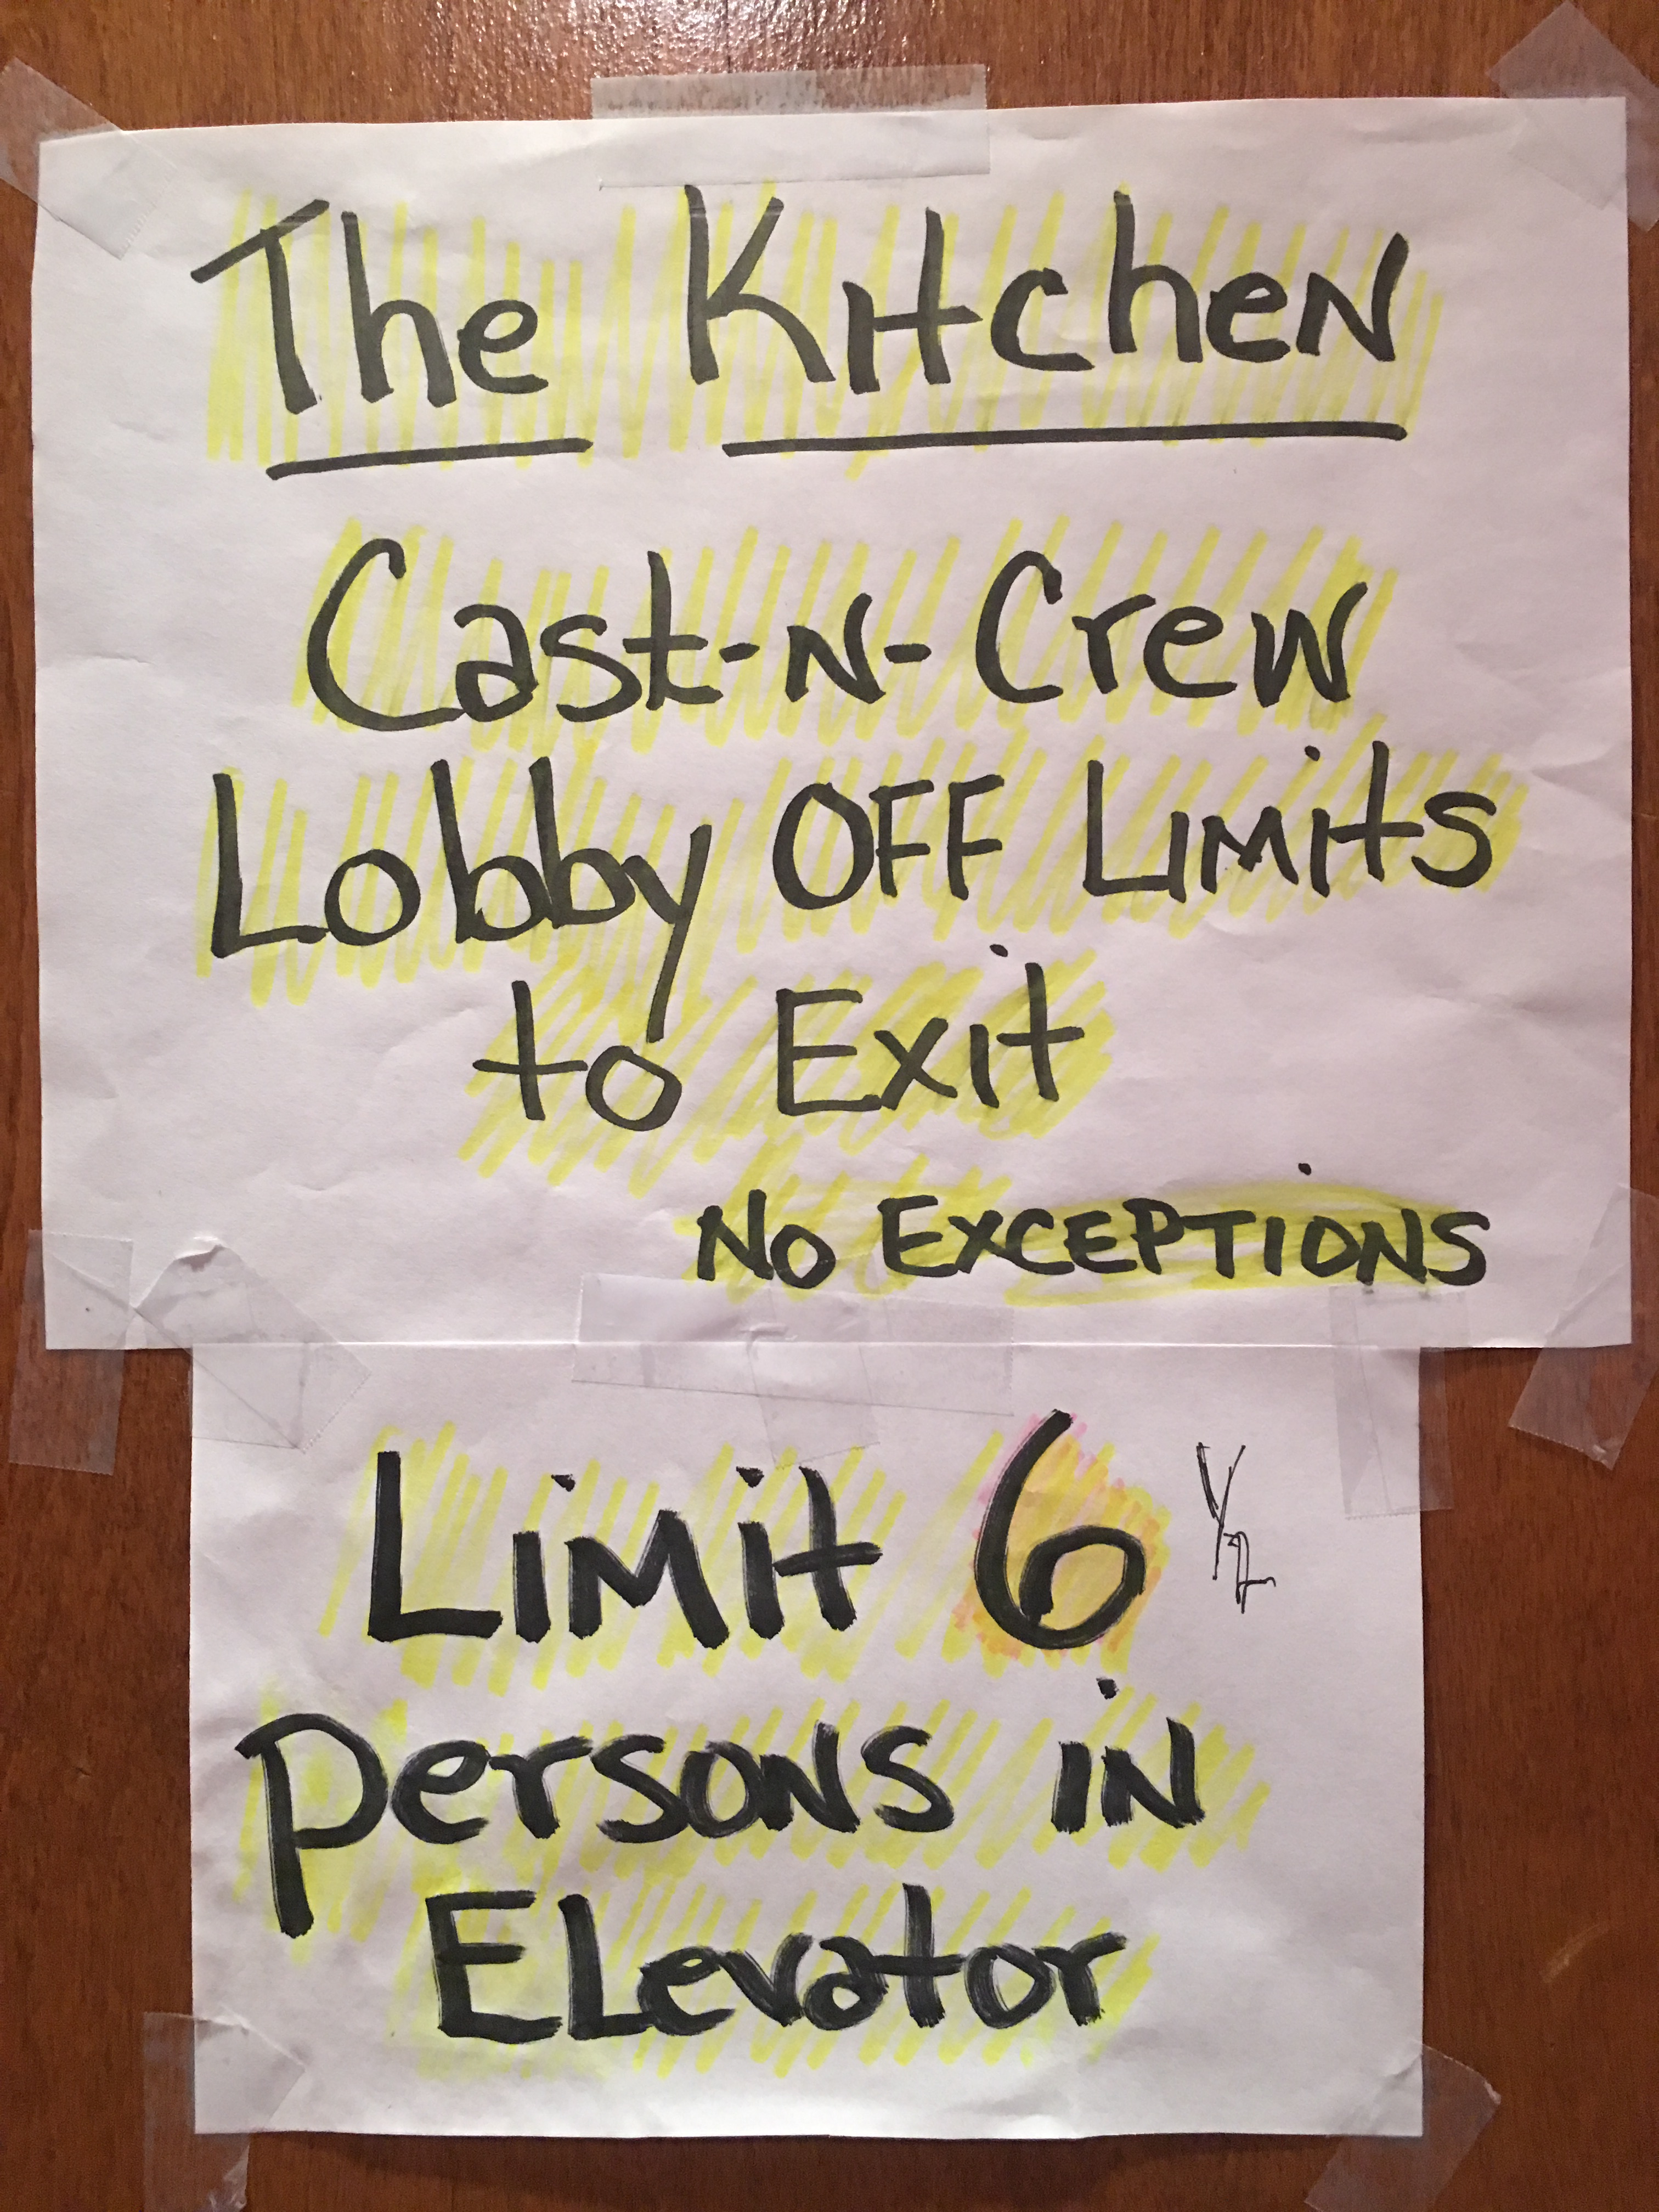 The Kitchen
Cast-N-Crew
Lobby OFF Limits
to Exit
No EXCEPTIONS
Limit 6 1/2
persons in
Elevator